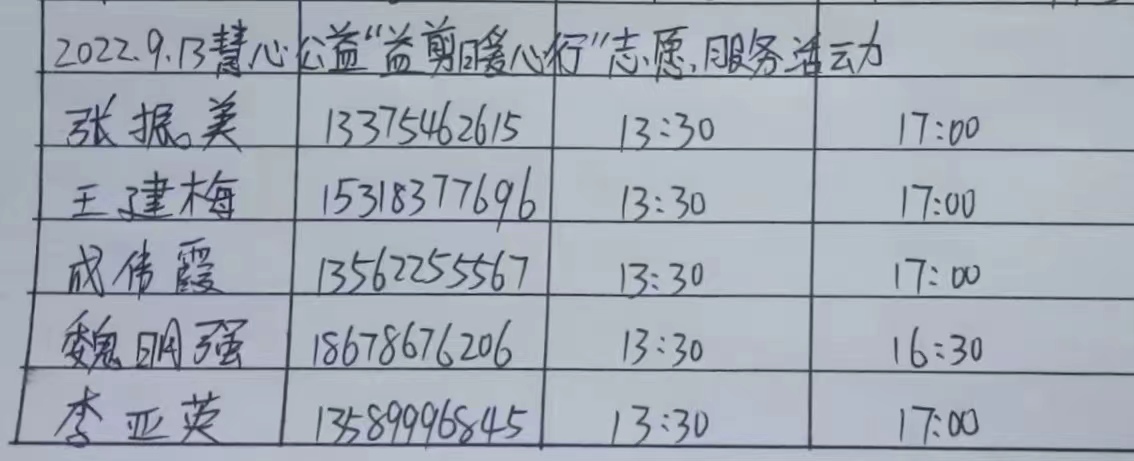 2022.9.13慧心公益“益剪暖心行”志愿服务活动
张振美 13375462615 13:30 17:00
王建梅 15318377696 13:30 17:00
成伟霞 13562255567 13:30 17:00
魏明强 18678676206 13:30 16:30
李亚英 13589996845 13:30 17:00